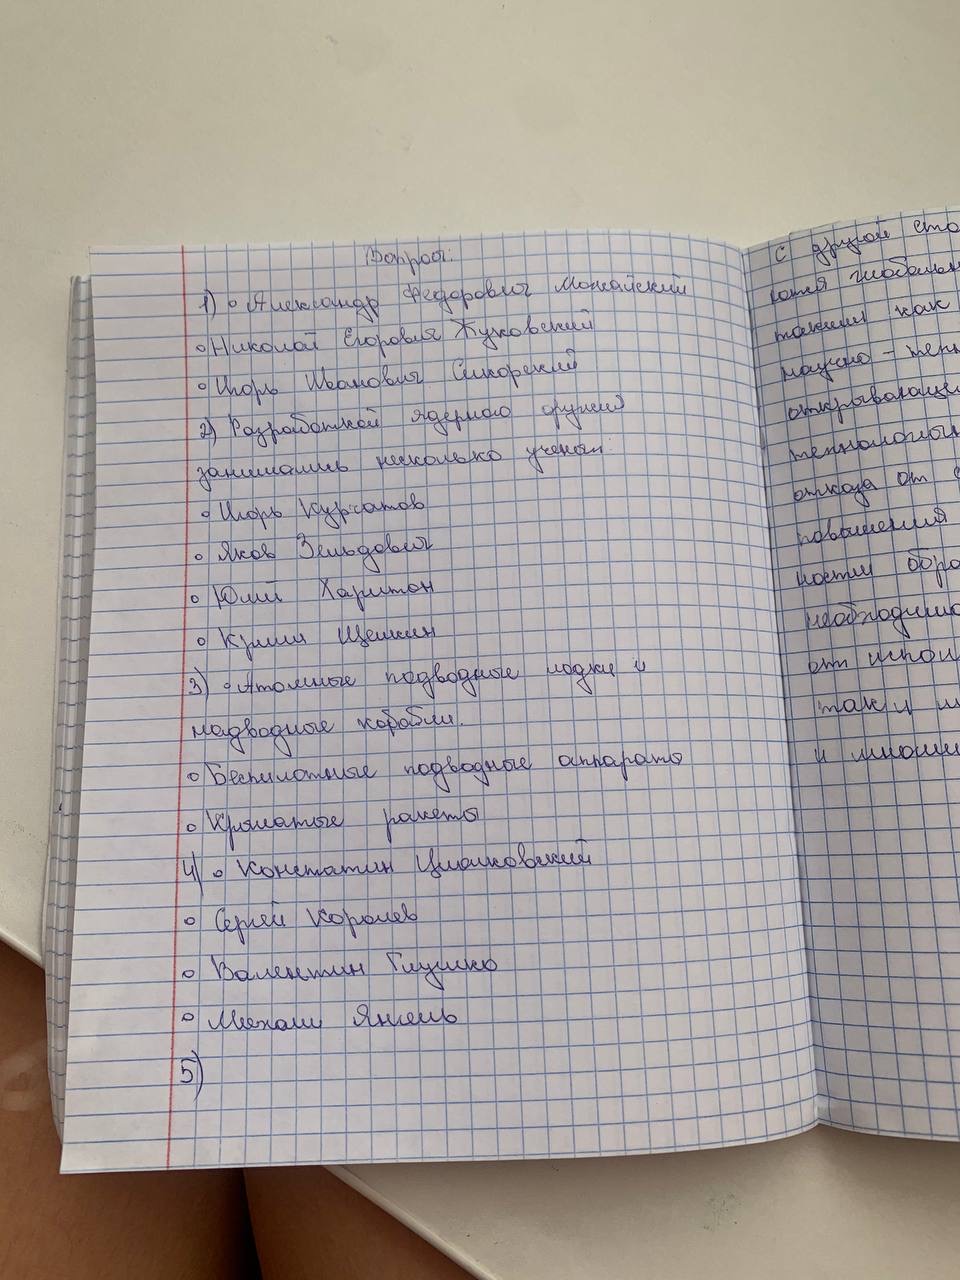 Вопросы:
1) • Александр Федорович Можайский
• Николай Егорович Жуковский
• Игорь Иванович Сикорский
2) Разработкой ядерного оружия
занимались несколько ученых:
• Игорь Курчатов
• Яков Зельдович
• Юлий Харитон
• Кирилл Щелкин
3) • Атомные подводные лодки и
надводные корабли.
• Беспилотные подводные аппараты
• Крылатые ракеты
4) • Констатин Циолковский
• Сергей Королев
• Валентин Глушко
• Михаил Янгель
5)
С другой сто
такими как
научно - техн
открывающи
технологии
отказа от
повышения
ности обра
необходимо
от
так и
и